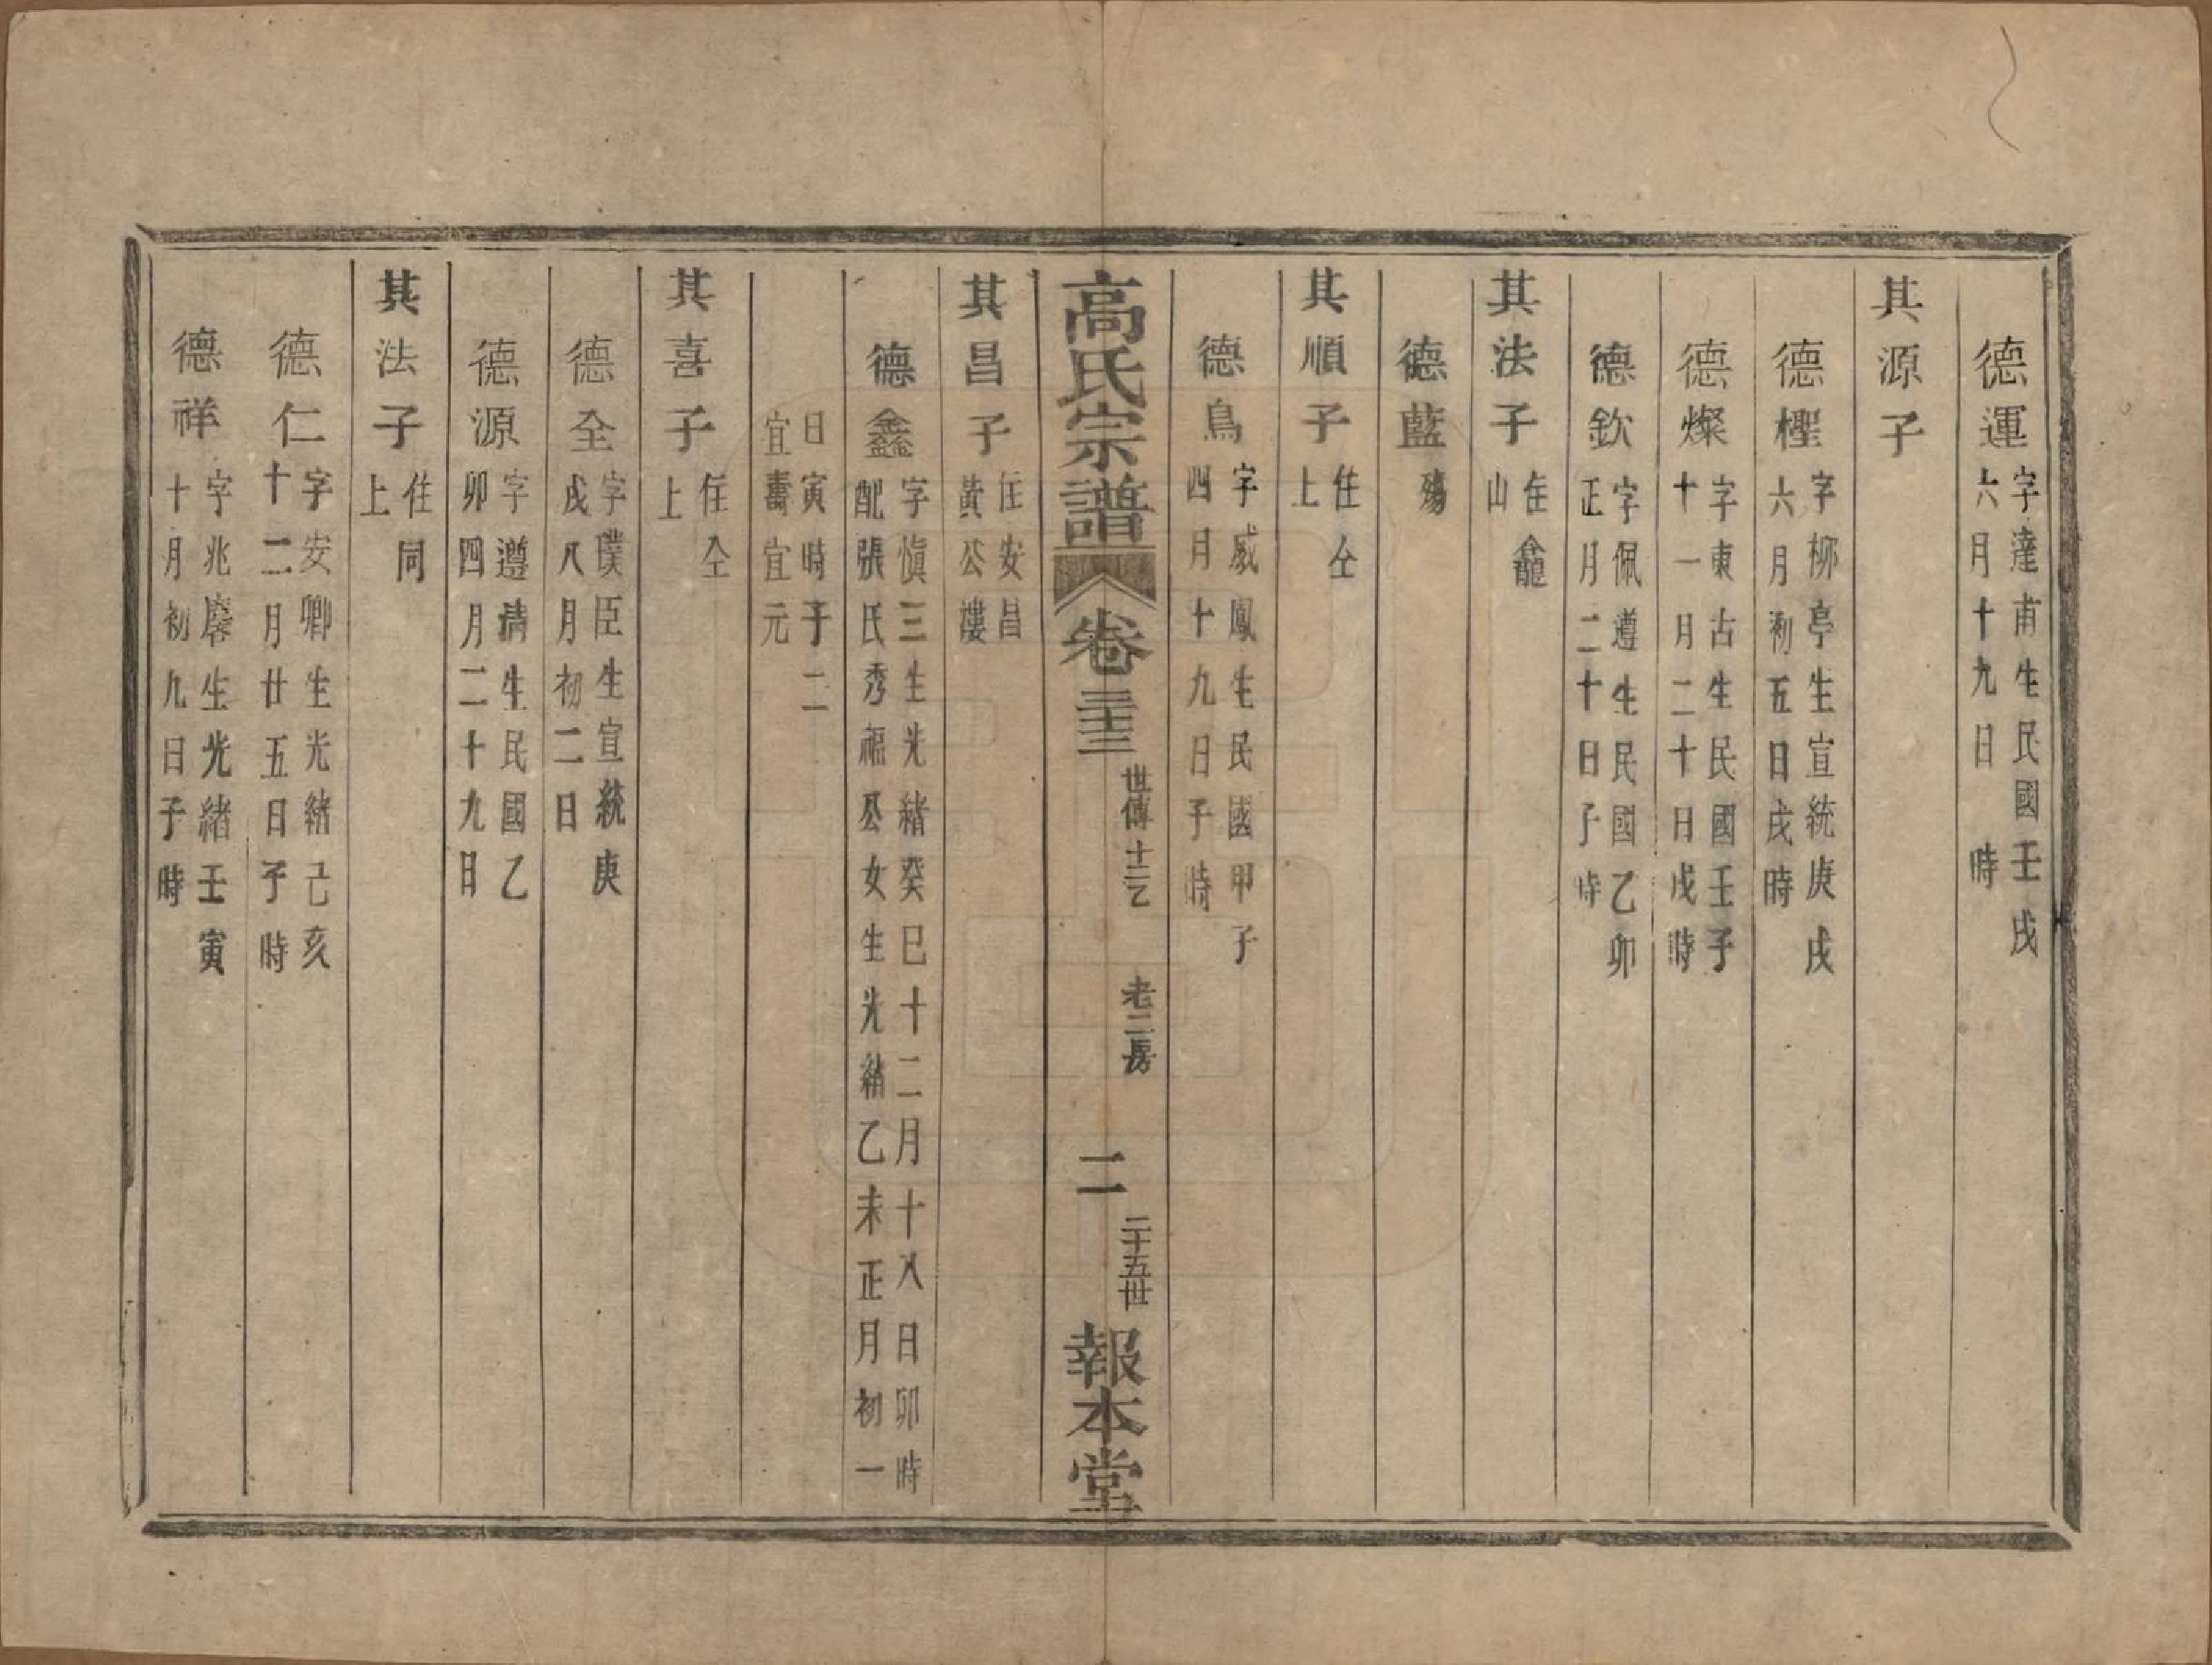 德運 字達甫生民國壬戌
六月十九日 時
其源子
德檉 字柳亭生宣統庚戌
六月初五日戌時
德燦 字東古生民國壬子
十一月二十日戌時
德欽 字佩遵生民國乙卯
正月二十日子時
其法子 住龕
山
德藍 殤
其順子 住仝
上
德鳥 字威鳳生民國甲子
四月十九日子時
高氏宗譜 卷三十三 世傳十二乙 老二房 二 二十五世 報本堂
其昌子 住安昌
黃公漊
德鑫 字慎三生光緒癸巳十二月十八日卯時
配張氏秀福公女生光緒乙未正月初一
日寅時子二
宜壽宜元
其喜子 住仝
上
德全 字璞臣生宣統庚
戌八月初二日
德源 字遵清生民國乙
卯四月二十九日
其法子 住同
上
德仁 字安卿生光緒己亥
十二月廿五日子時
德祥 字兆麐生光緒壬寅
十月初九日子時